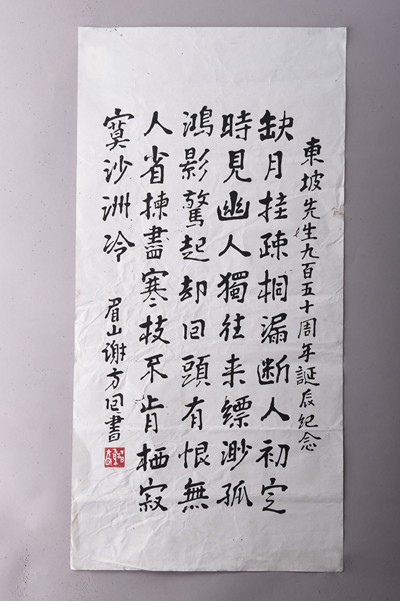 東坡先生九百五十周年誕辰紀念
缺月挂疎桐漏断人初定
時見幽人獨往来縹渺孤
鴻影驚起却回頭有恨無
人省揀盡寒枝不肯栖寂
寞沙洲冷
眉山謝方回書